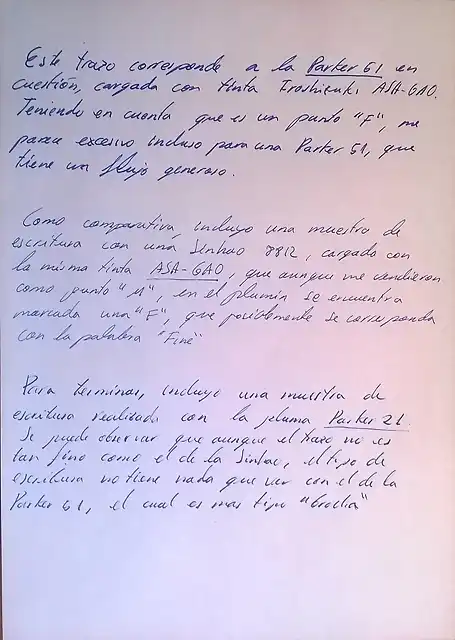 Este trazo corresponde a la Parker 61 en
cuestión, cargada con tinta Iroshizuki ASA-GAO.
Teniendo en cuenta que es un punto "F", me
parece excesivo incluso para una Parker 61, que
tiene un flujo generoso.
Como comparativa, incluyo una muestra de
escritura con una Jinhao 8812, cargado con
la misma tinta ASA-GAO, que aunque me vendieron
como punto "M", en el plumín se encuentra
marcada una "F", que posiblemente se corresponda
con la palabra "Fine"
Para terminar, incluyo una muestra de
escritura realizada con la pluma Parker 21.
Se puede observar que aunque el trazo no es
tan fino como el de la Jinhao, el tipo de
escritura no tiene nada que ver con el de la
Parker 61, el cual es mas tipo "brocha"